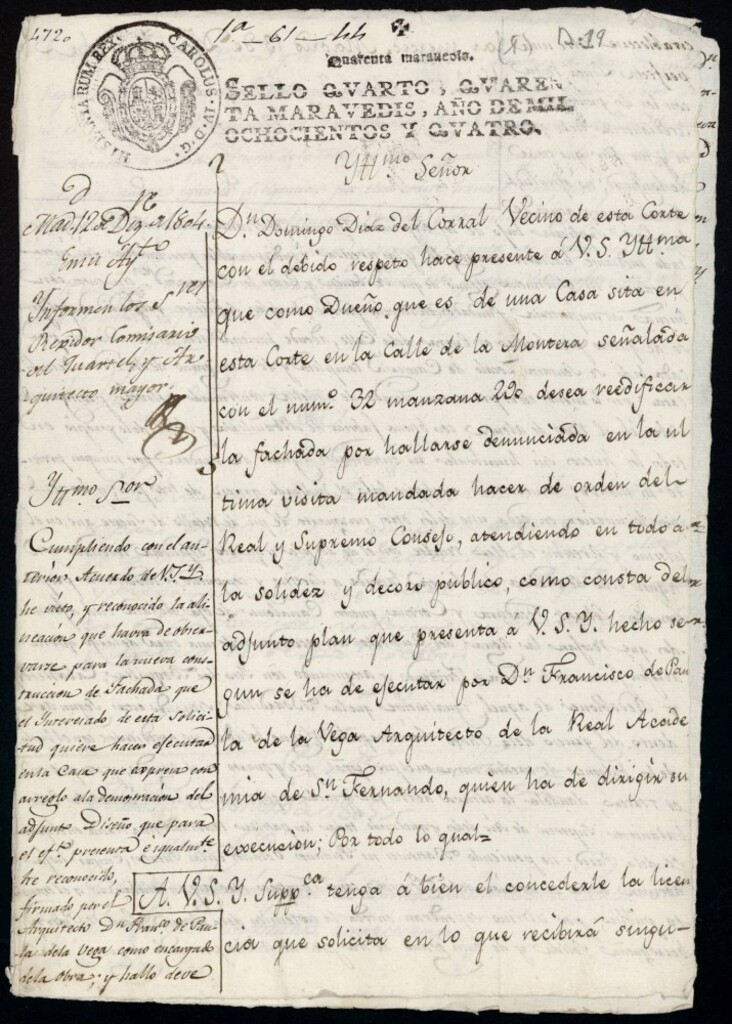 1ª-61-44
Quarenta maravedis.
SELLO QVARTO, QVAREN
TA MARAVEDIS, AÑO DE MIL
OCHOCIENTOS Y QVATRO.
HISPANIARUM REX CAROLUS IV D G
Yttmo Señor
Dn Domingo Diaz del Corral Vecino de esta Corte
con el debido respeto hace presente á V. S. Yttma
que como Dueño que es de una Casa sita en
esta Corte en la Calle de la Montera señalada
con el numo 32 manzana 290 desea reedificar
la fachada por hallarse denunciada en la ul
tima visita mandada hacer de orden del
Real y Supremo Consejo, atendiendo en todo á
la solidez y decoro publico, como consta del
adjunto plan que presenta á V. S. Y. hecho se
gun se ha de ejecutar por Dn Francisco de Pau
la de la Vega Arquitecto de la Real Acade
mia de Sn Fernando, quien ha de dirigir su
execucion; Por todo lo qual
A. V. S. Y. Suppca tenga á bien el concederle la licen
cia que solicita en lo que recibirá singu-
Mad. 12 de Dize de 1804
En su Ayto
Ynformen los Sres
Regidor Comisario
del Quartel, y Ar
quitecto mayor.
Yttmo Sor
Cumpliendo con el an-
terior Acuerdo de V.S.Y.
he visto, y reconocido la ali-
neación que havra de obser-
varse para la nueva cons-
truccion de Fachada que
el Interesado de esta solici-
tud quiere hacer ejecutar
en la Casa que expresa con
arreglo a la demostracion del
adjunto Diseño que para
el efto presenta e igualmte
he reconocido,
firmado por el
Arquitecto Dn Franco de Pau-
la de la Vega como encargado
de la obra; y hallo deve